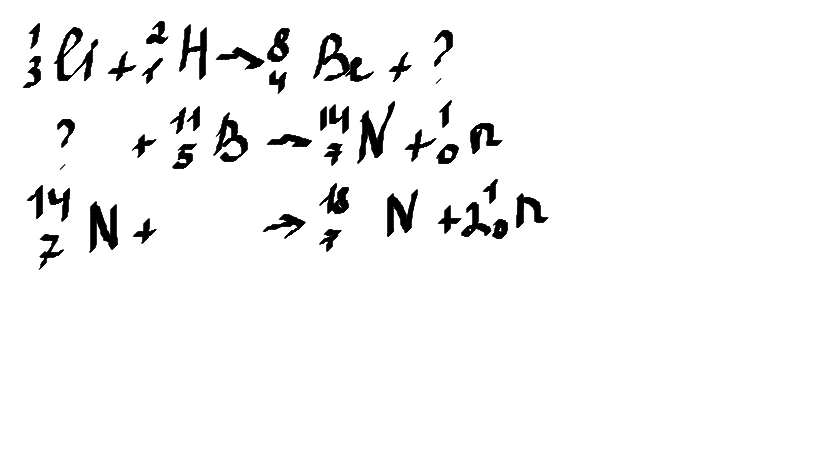 ¹₃Li + ²₁H → ⁸₄Be + ?
? + ¹¹₅B → ¹⁴₇N + ¹₀n
¹⁴₇N + → ¹⁸₇N + 2¹₀n